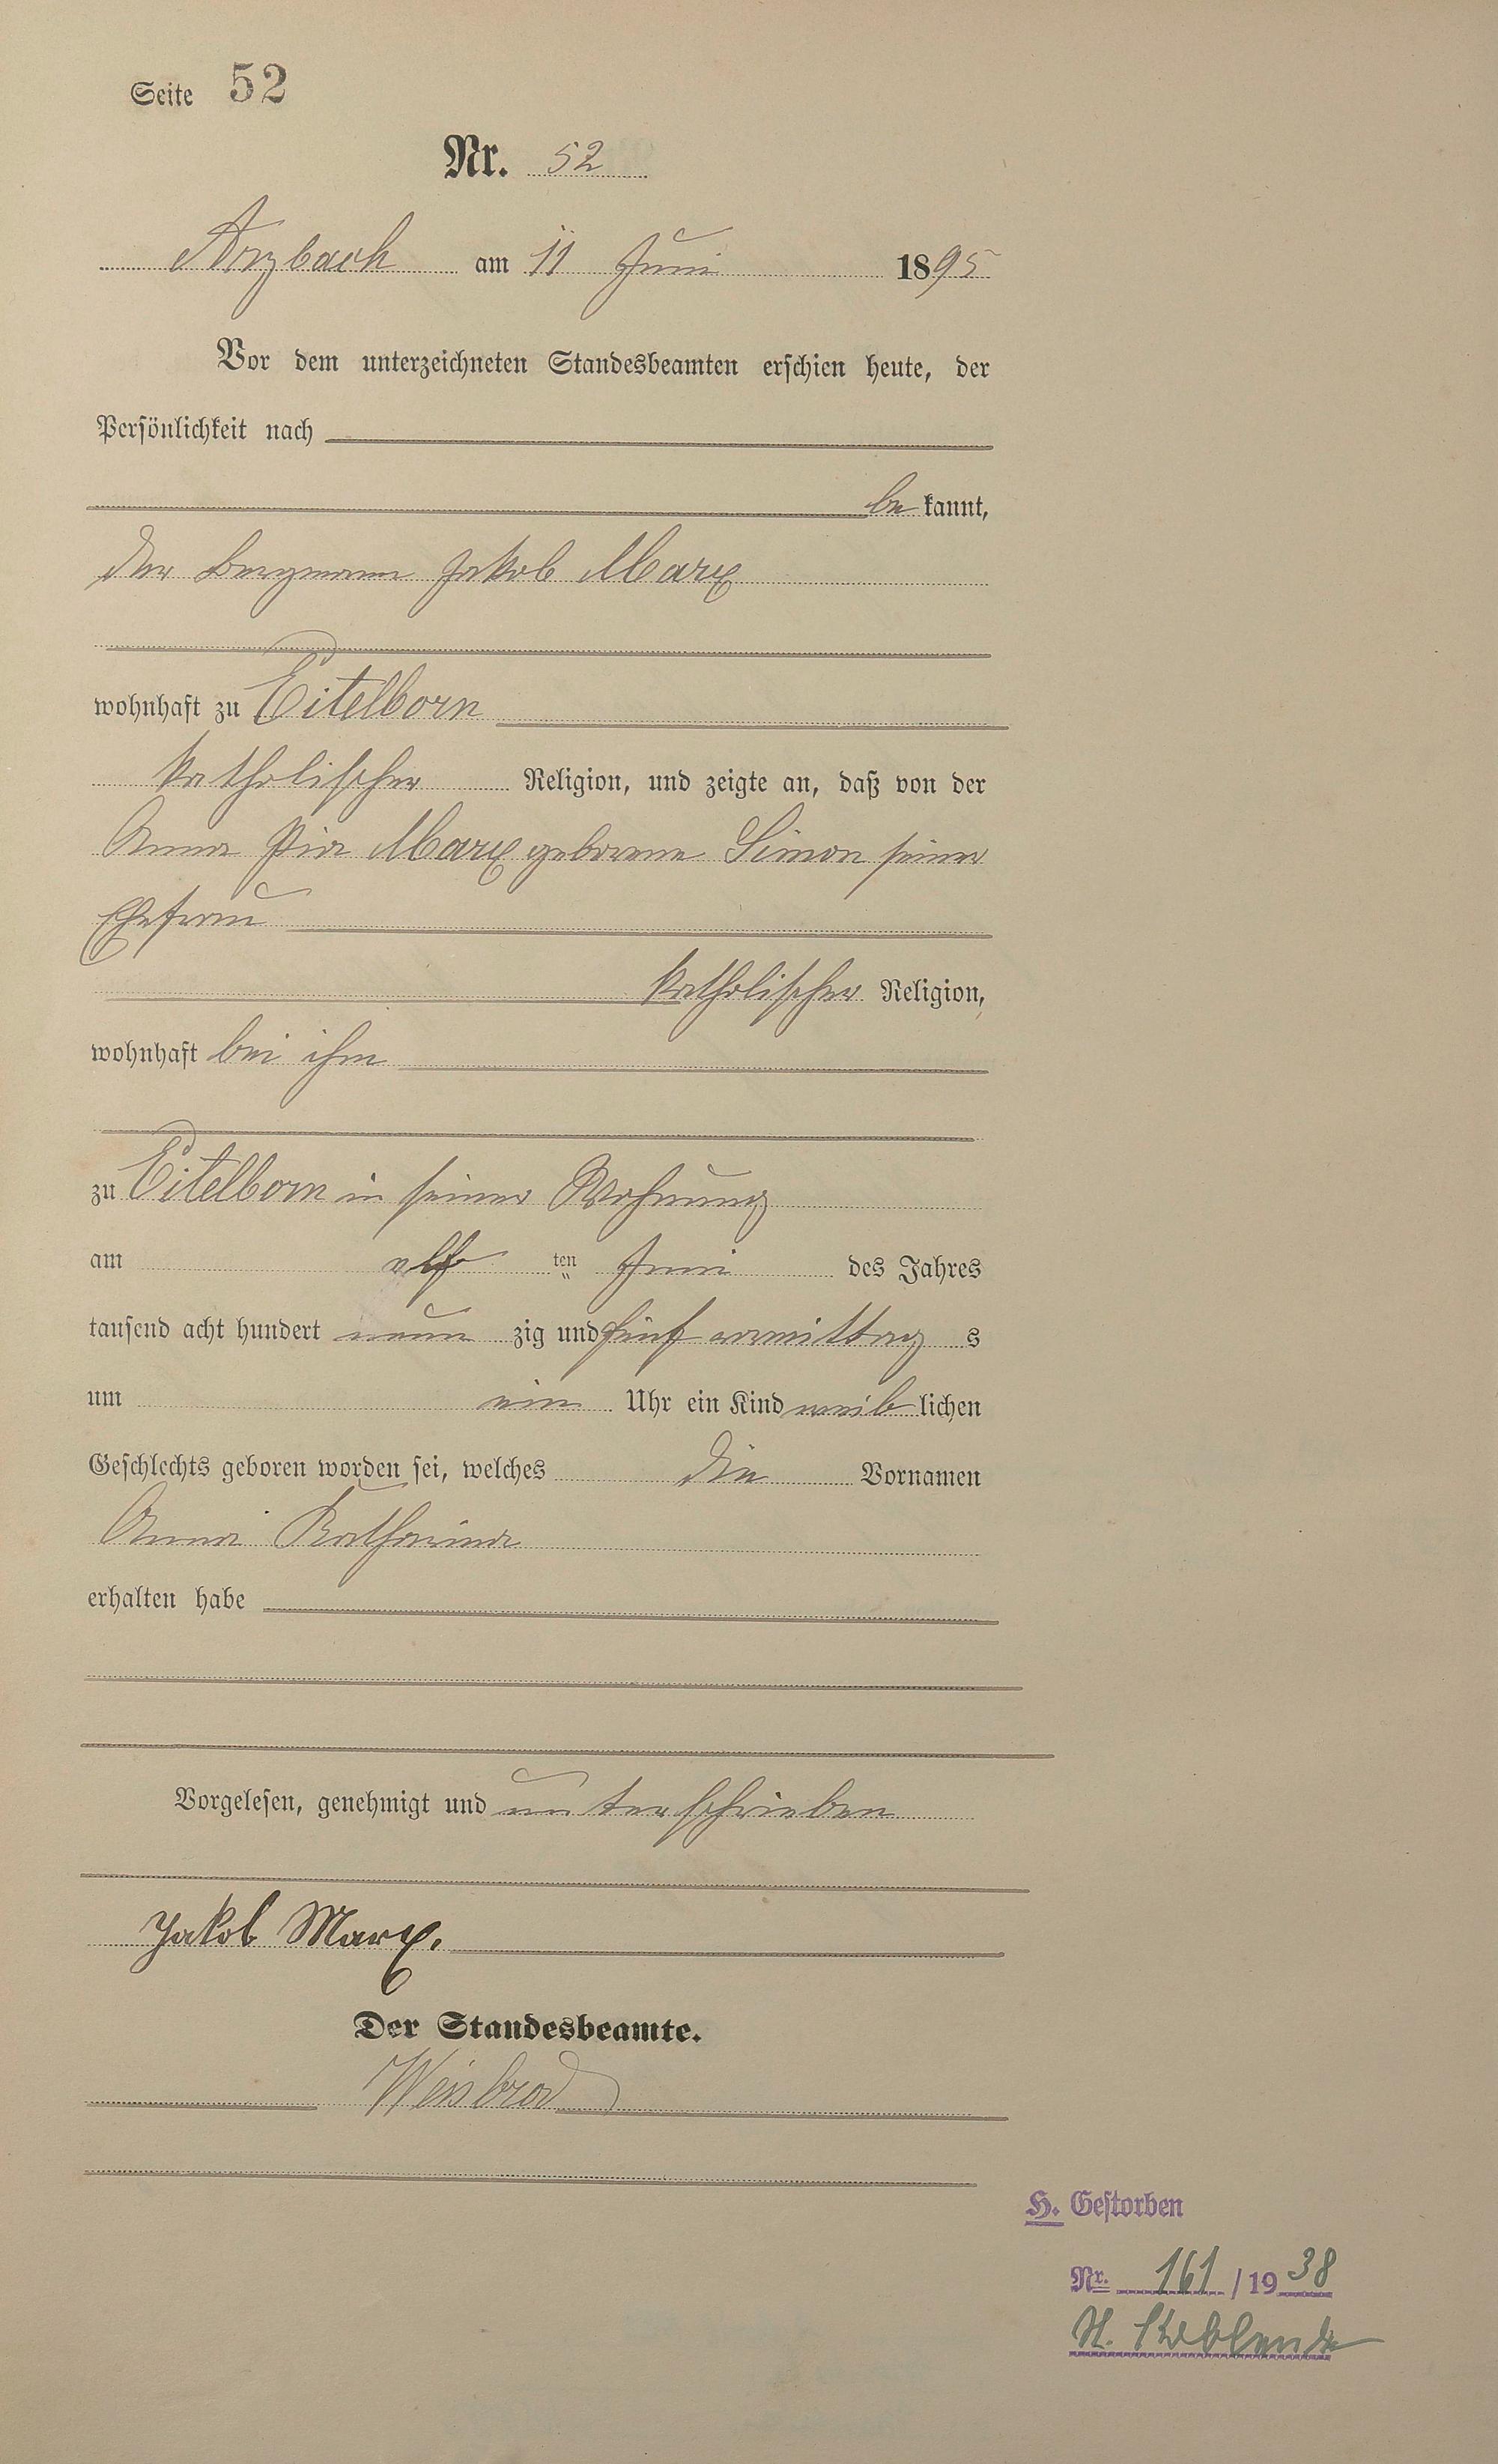 Seite 52
Nr. 52
Arzbach am 11 Juni 1895
Vor dem unterzeichneten Standesbeamten erschien heute, der
Persönlichkeit nach
be kannt,
der Bergmann Jakob Marx
wohnhaft zu Eitelborn
katholischer Religion, und zeigte an, daß von der
Anna Pia Marx geborene Simon seiner
Ehefrau
katholischer Religion,
wohnhaft bei ihm
zu Eitelborn in seiner Wohnung
am elf ten Juni des Jahres
tausend acht hundert neun zig und fünf vormittag s
um ein Uhr ein Kind weib lichen
Geschlechts geboren worden sei, welches die Vornamen
Anna Katharina
erhalten habe
Vorgelesen, genehmigt und unterschrieben
Jakob Marx.
Der Standesbeamte.
Weisbrod
H. Gestorben
Nr. 161 / 19 38
St.